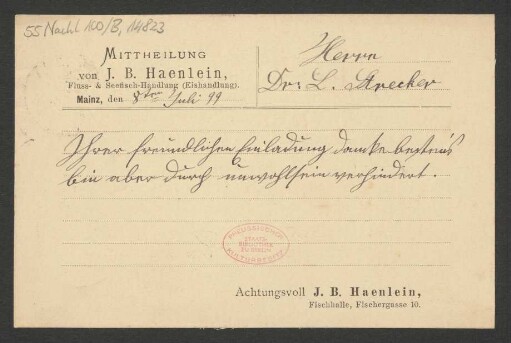 55 Nachl 100/B, 14823
MITTHEILUNG
von J. B. Haenlein,
Fluss- & Seefisch-Handlung (Eishandlung).
Mainz, den 8ten Juli 99
Herrn
Dr. L. Strecker
Ihrer freundlichen Einladung danke bestens
bin aber durch unwohlsein verhindert.
PREUSSISCHER
STAATS-
BIBLIOTHEK
ZU BERLIN
KULTURBESITZ
Achtungsvoll J. B. Haenlein,
Fischhalle, Fischergasse 10.